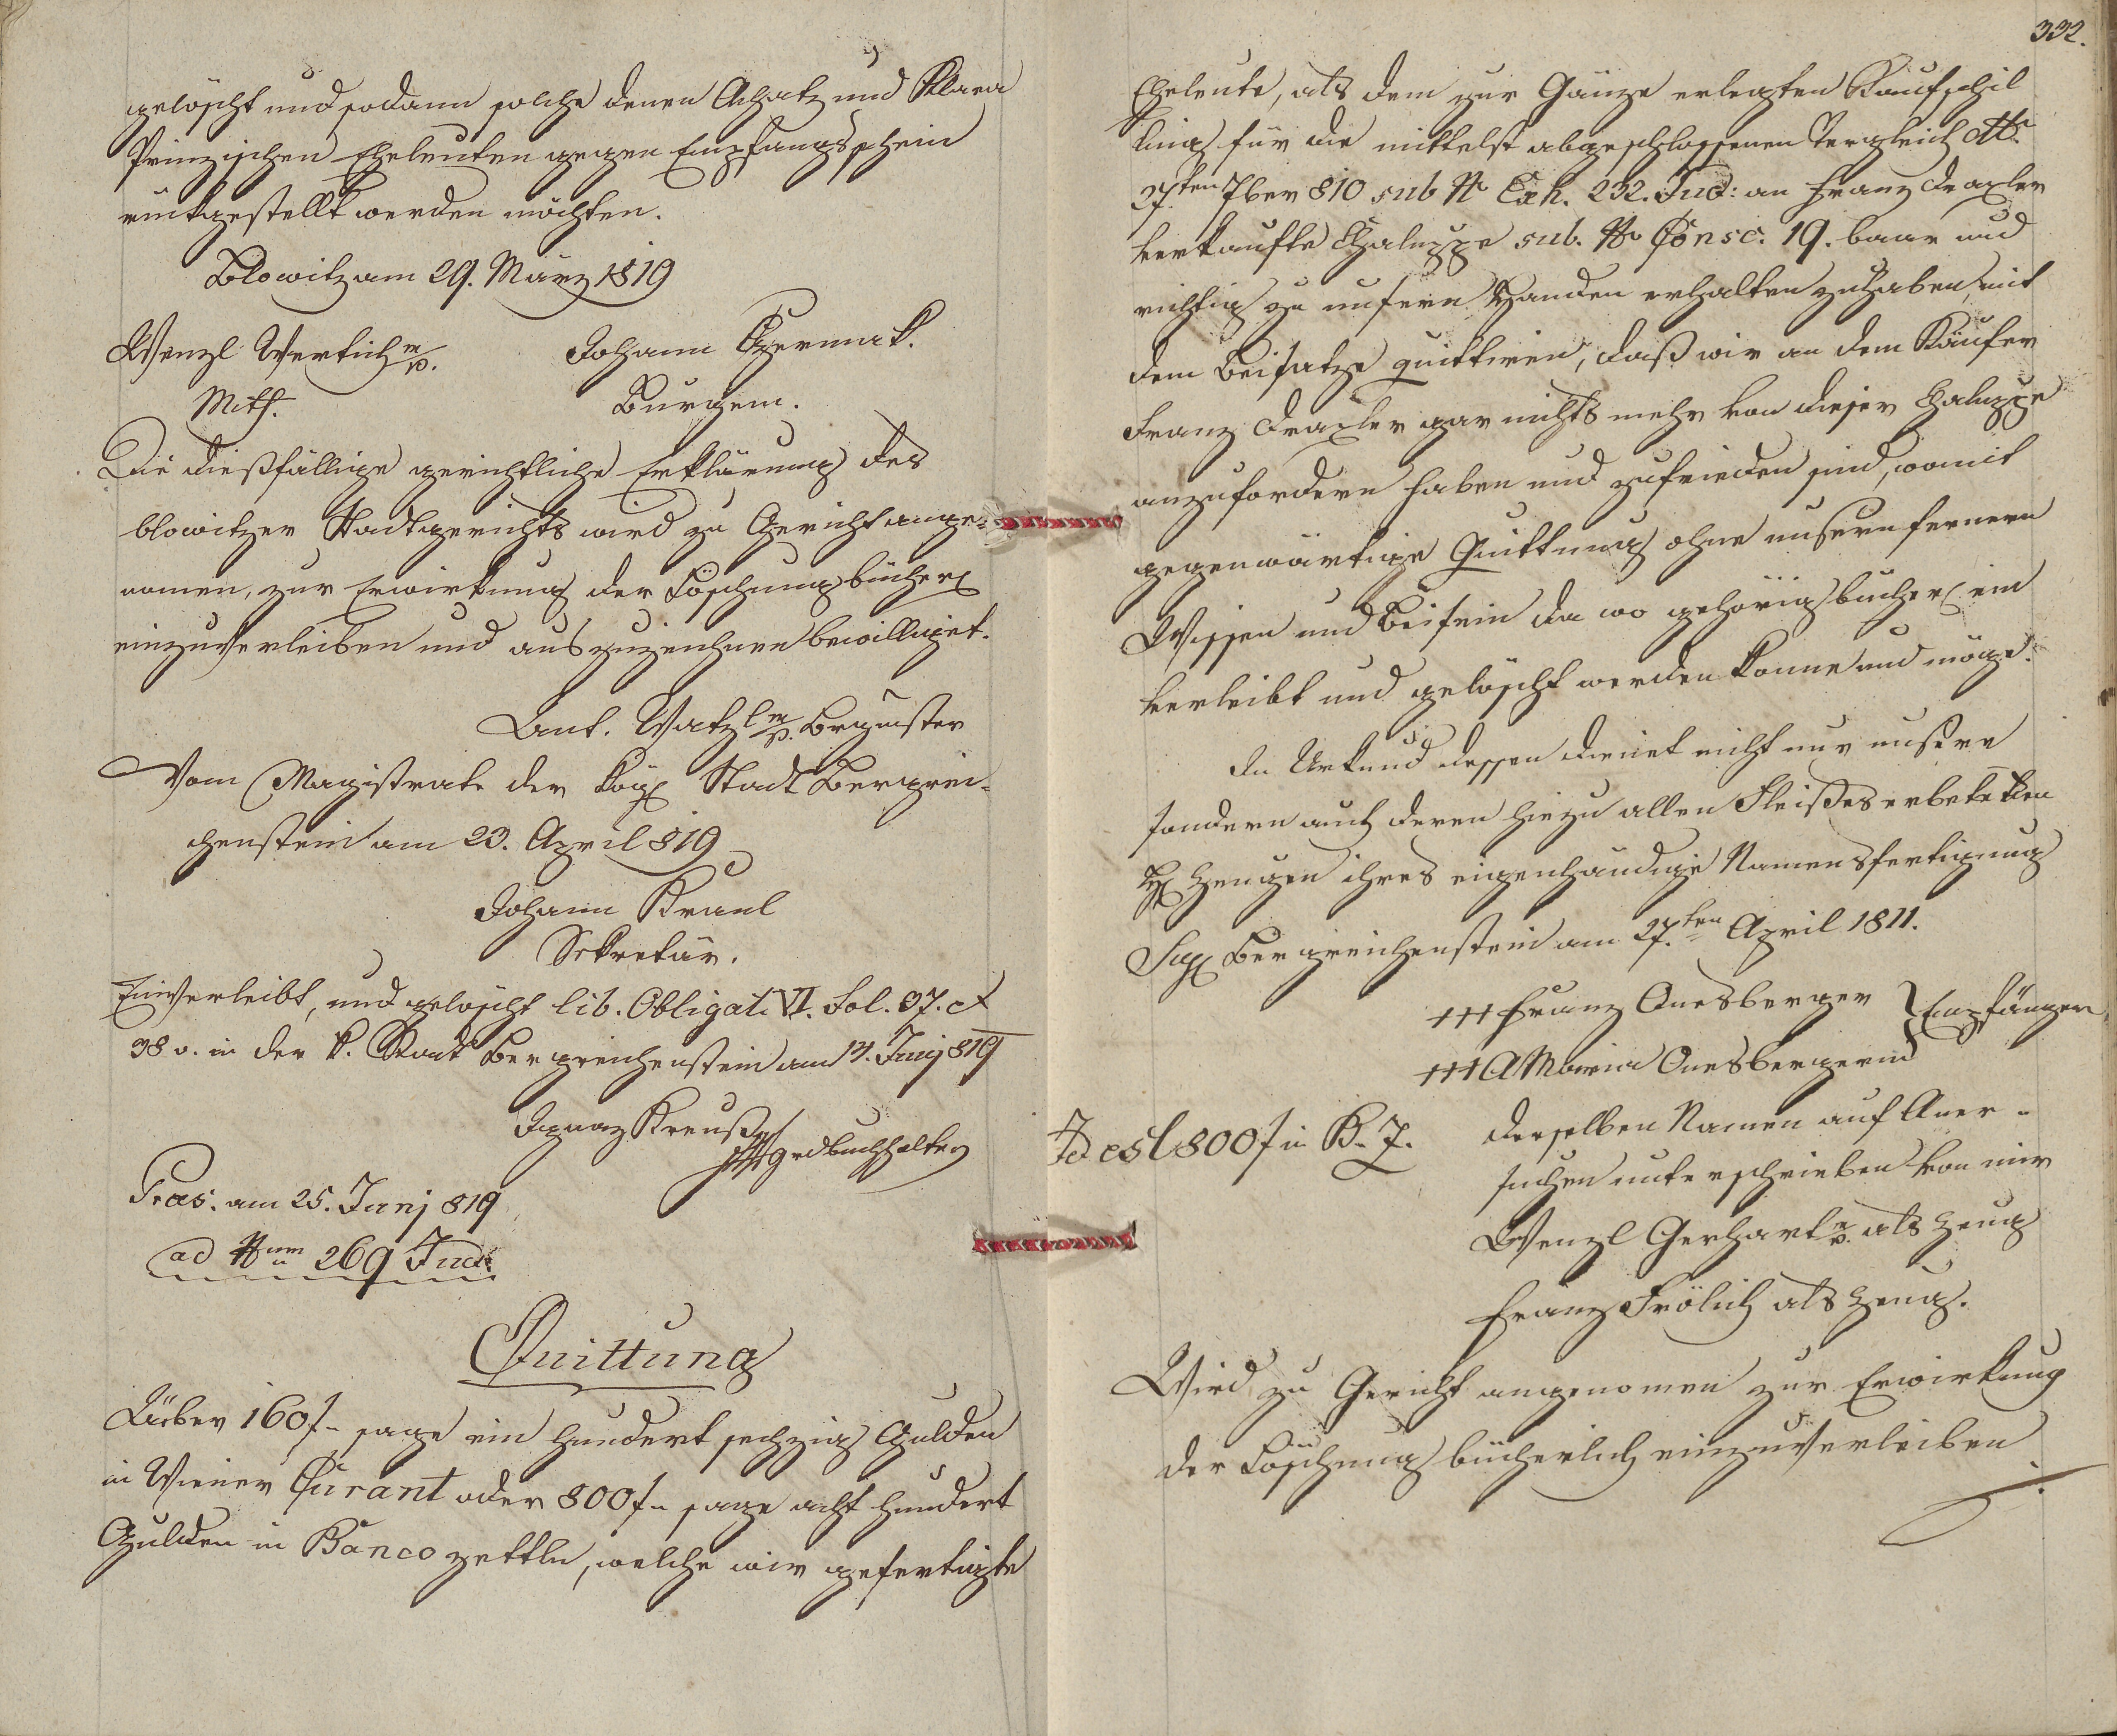 gelöscht und sodann solche denen Achatz und Klara
Prinzischen Eheleuten gegen Empfangsschein
rückgestellt werden möchten.
Blowitz am 29. März 1819
Wenzl Wertich mp. Johann Czermak.
Mith. Burgem.
Die dießfällige gerichtliche Erklärung des
blowitzer Stadtgerichts wird zu Gericht ange-
nomen, zur Erwirkung der Löschung bücherl
einzuverleiben und auszuzeichnen bewilliget.
Ant. Watzl mp. Brgmster
Vom Magistrate der kögl Stadt Bergrei-
chenstein am 23. April 819
Johann Kraul
Sekretär.
Einverleibt, und gelöscht lib. Obligat. VI. Fol. 37. et
38 v. in der k. Stadt Bergreichenstein am 14. Junj 819
Ignaz Kreuß
grdbuchhalter
Præs. am 25. Junj 819
ad Num 269 Jud.
Quittung
Uiber 160 f - sage ein hundert sechzig Gulden
in Wiener Curant oder 800 f - sage acht hundert
Gulden in Banco zettln, welche wir gefertigte
332.
Eheleute, als dem zur Gänze erlegten Kaufschil
ling für die mittelst abgeschlossenen Vergleich dtto
27ten 7ber 810 sub No Exh. 232. Jud: an Franz Draxler
verkaufte Chaluppe sub. No Consc. 19. baar und
richtig zu unsern Handen erhalten zu haben, mit
dem Beisatze quittiren, daß wir an dem Käufer
Franz Draxler gar nichts mehr von dieser Chaluppe
anzufordern haben und zufrieden sind, womit
gegenwärtige Quittung ohne unsern fernern
Wissen und Beisein da wo gehörig bücherl ein
verleibt und gelöscht werden könne und möge.
In Urkund dessen dienet nicht nur unsere
sondern auch deren hiezu allen Fleißes erbetetten
H Zeugen ihres eigenhändige Namensfertigung
Sigl Bergreichenstein am 27.ten April 1811.
+++ Franz Onesberger } Empfänger
+++ A Maria Onesbergerin
Id est 800 f in B. Z. derselben Namen auf Aner-
suchen unterschrieben von mir
Wenzl Gerhart mp. als Zeug
Franz Frölich als Zeug.
Wird zu Gericht angenomen zur Erwirkung
der Löschung bücherlich einzuverleiben